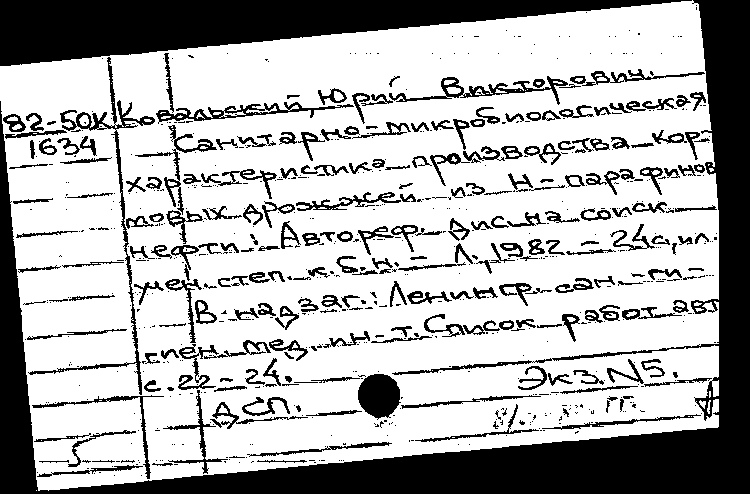 82-50К Ковальский, Юрий Викторович.
1634 Санитарно-микробиологическая
характеристика производства кор-
мовых дрожжей из Н-парафинов
нефти: Автореф. дис. на соиск
учен. степ. к.б.н. - Л., 1982. - 24с, ил.
В надзаг.: Ленингр. сан.-ги-
гиен. мед. ин-т. Список работ авт
с. 22-24.
Экз. N5.
ДСП.
5